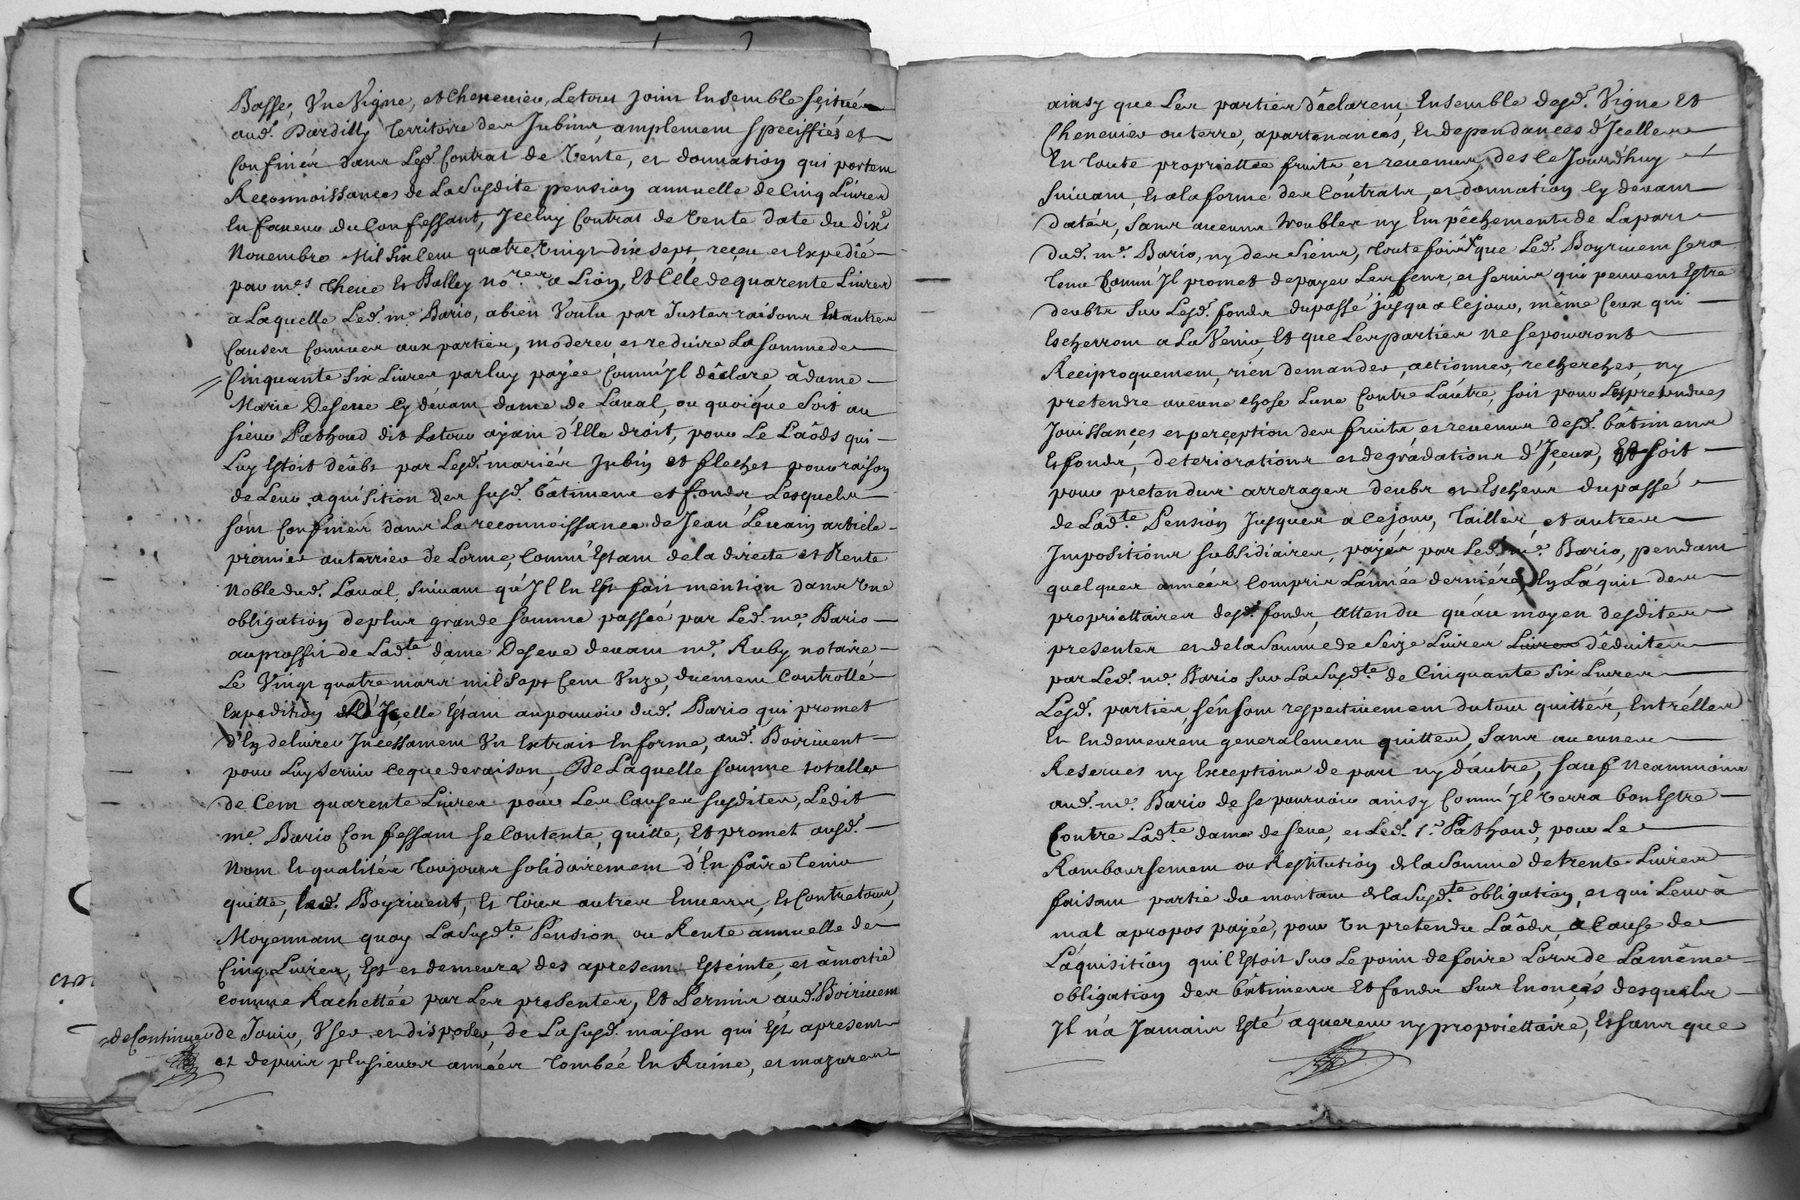 Basse, Vne Vigne, et Chenevier, Le tout joint Ensemble scitué
aud.t Dardilly Territoire des Jubins amplement speciffiés et
Confinés dans Lesd. Contrat de Vente, et donnation qui portent
Reconnoissances de La Susdite pension annuelle de Cinq Livres
En faveur du Confessant, Jceluy Contrat de Vente date du dix.e
Novembre Mil Six Cent quatre Vingt dix sept, reçeu et Expedié
par m.es Cheue Et Balley no.res a Lion, Et Cele de quarente Livres
a Laquelle Led. m.e Bario, a bien Voulu par Justes raisons Et autres
Causes Connues aux parties, moderer et reduire La Somme de
Cinquante Six Livres par luy payée Comm'Jl déclare, à dame
Marie Deseve Cy devant dame de Laval, ou quoique Soit au
Sieur Pathoud dit Latour ayant d'Elle droit, pour Le Laôds qui
Luy Estoit deubt par Lesd. mariés Jubin et flechet pour raison
de Leur aquisition des Susd. bâtiments et fonds Lesquels
Sont Confinés dans La reconnoissance de Jean Levain article
premier au terrier de Lorme, Comm'Estant de la directe et Rente
Noble dud. Laval, Suivant qu'Jl En Est fait mention dans Vne
obligation de plus grande Somme passée par Led. m.e Bario
au proffit de Lad.te dame Deseve devant m.e Ruby notaire
Le Vingt quatre mars mil Sept Cent Vnze, duement Controllé
Expedition d'Jcelle Estant au pouvoir dud. Bario qui promet
d'En delivrer Jncessament Vn Extrait En forme, aud. Boirivent
pour Luy Servir Ce que de raison, De Laquelle Somme totalle
de Cent quarente Livres pour Les Causes Susdites, Ledit
m.e Bario Confessant Se Contente, quitte, Et promet ausd.
Nom Et qualités Toujours Solidairement d'En faire tenir
quitte, Led. Boyrivent, Et Tous autres Envers, Et Contre tous,
Moyennant quoy La Susd.te Pension ou Rente annuelle de
Cinq Livres, Est et demeure des apresent Esteinte, et amortie
comme Rachettée par Les presentes, Et Permis aud. Boirivent
=de Continuer de Jouir, Vser et disposer, de La Susd. maison qui Est apresent
et depuis plusieurs années Tombée En Ruine, et mazures
ainsy que Les parties déclarent, Ensemble desd. Vigne Et
Chenevier ou terre, apartenances, Et dependances d'Jcelles
En toute propriettée fruits et revenus, des Ce Jourdhuy
Suivant, Et a la forme des Contrats, et donnation Cy devant
datés, Sans aucuns troubles ny Empêchements de La part
dud. m.e Bario, ny des Siens, toute fois que Led. Boyrivent Sera
Tenu Comm'Jl promet de payer Les Cens, et Servis qui peuvent Estre
deubts Sur Lesd. fonds du passé jusqu a Ce jour, même Ceux qui
Escherront a La Venir, Et que Les parties ne Se pourront
Réciproquement, rien demander, actionner, rechercher, ny
pretendre aucune chose L'une Contre L'autre, Soit pour Les pretendues
Jouissances et perception des fruits et revenus desd. bâtiments
Et fonds, deteriorations et dégradations d'Jceux, Et Soit
pour pretendus arrerages deubs et Escheus du passé
de Lad.te Pension Jusques a Ce jour, Tailles et autres
Jmpositions Subsidiaires, payés par Led. m.e Bario, pendant
quelques années Compris L'année derniére, En L'aquit des
propriettaires desd. fonds, Attendu qu'au moyen desdites
presentes et de la Somme de Seize Livres Livres déduites
par Led. m.e Bario Sur La Susd.te de Cinquante Six Livres
Lesd. parties, S'en Sont respectivement du tout quittés, Entr'elles
Et En demeurent generalement quittes, Sans aucunes
Reserves ny Exceptions de part ny d'autre, Sauf Neanmoins
aud. m.e Bario de Se pourvoir ainsy Comm'Jl Verra bon Estre
Contre Lad.te dame de Seve, et Led. S.r Pathoud, pour Le
Remboursement ou Restitution de la Somme de trente Livres
faisant partie du montant de la Susd.te obligation, et qui Leur à
mal apropos payée, pour Vn pretendu Laôds, a Cause de
L'aquisition qu'il Estoit Sur Le point de faire Lors de La même
obligation des bâtiments Et fonds Sus Enoncés desquels
Jl n'a Jamais Esté aquereur ny propriettaire, Et Sans que